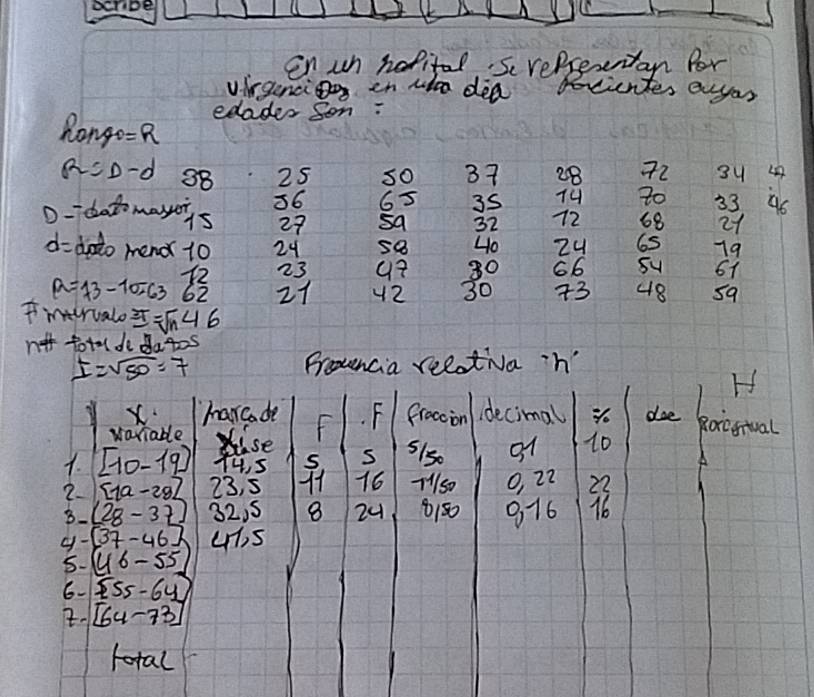 scribe
En un hopital se representan Por
Urgencias en una dia pacientes cuyas
edades son :
Rango=R
R=D-d 38 25 50 37 28 72 34 47
D=dato mayor 15 36 65 35 14 70 33 46
27 59 32 12 68 21
d=dato menor 10 24 58 40 24 65 19
12 23 47 30 66 54 61
R=73-10=63 62 21 42 30 73 48 59
# intervalo I=√n 46
n# total de datos
I=√50=7 Frecuencia relativa "h"
H
X variable marca de clase F .F fraccion decimal % dec porcentual
1. [10-19] 14,5 5 5 5/50 0,1 10
2- [19-28] 23,5 11 16 11/50 0,22 22
3- [28-37] 32,5 8 24 8/50 0,16 16
4- [37-46] 41,5
5- [46-55]
6- [55-64]
7- [64-73]
total